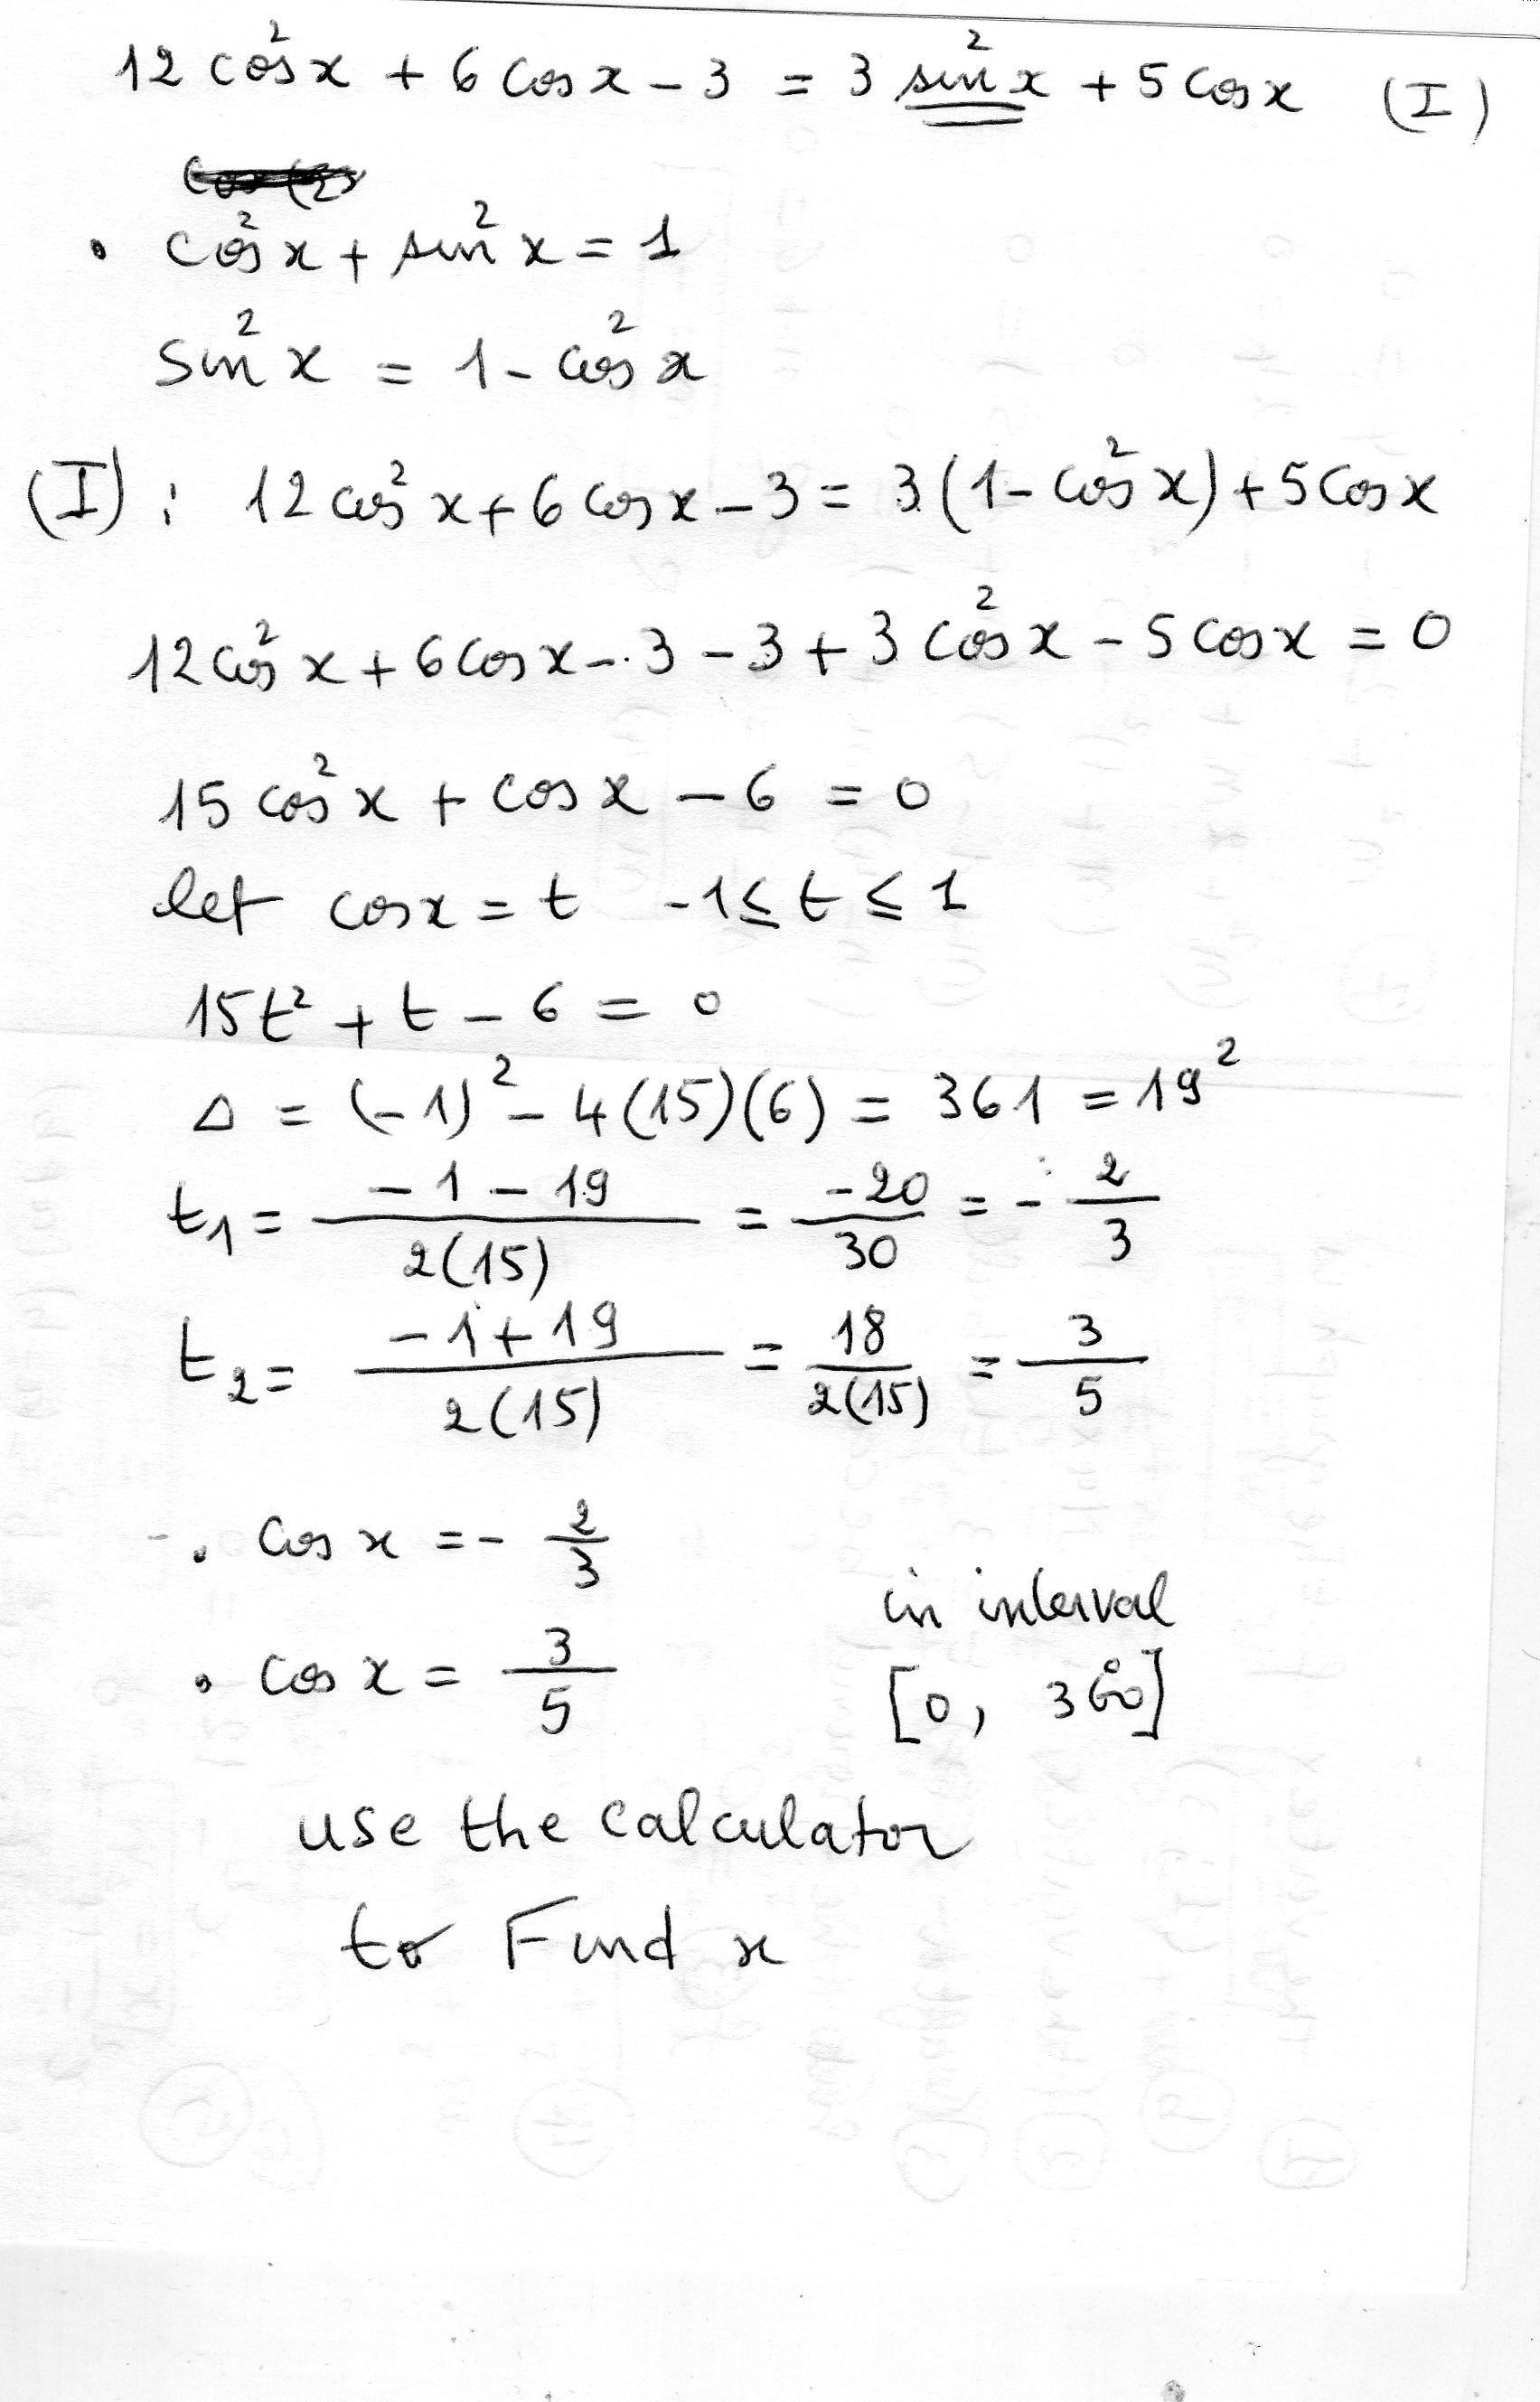 12 cos²x + 6 cos x - 3 = 3 sin²x + 5 cos x (I)
• cos²x + sin²x = 1
sin²x = 1 - cos²x
(I) : 12 cos²x + 6 cos x - 3 = 3(1 - cos²x) + 5 cos x
12 cos²x + 6 cos x - 3 - 3 + 3 cos²x - 5 cos x = 0
15 cos²x + cos x - 6 = 0
let cos x = t -1 ≤ t ≤ 1
15t² + t - 6 = 0
Δ = (-1)² - 4(15)(6) = 361 = 19²
t₁ = (-1 - 19)/(2(15)) = -20/30 = -2/3
t₂ = (-1 + 19)/(2(15)) = 18/(2(15)) = 3/5
• cos x = -2/3
in interval
• cos x = 3/5 [0, 360°]
use the calculator
to Find x